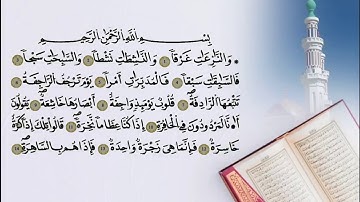 بِسْمِ اللَّهِ الرَّحْمَٰنِ الرَّحِيمِ
وَالنَّازِعَاتِ غَرْقًا ١ وَالنَّاشِطَاتِ نَشْطًا ٢ وَالسَّابِحَاتِ سَبْحًا ٣
فَالسَّابِقَاتِ سَبْقًا ٤ فَالْمُدَبِّرَاتِ أَمْرًا ٥ يَوْمَ تَرْجُفُ الرَّاجِفَةُ ٦
تَتْبَعُهَا الرَّادِفَةُ ٧ قُلُوبٌ يَوْمَئِذٍ وَاجِفَةٌ ٨ أَبْصَارُهَا خَاشِعَةٌ ٩ يَقُولُونَ
أَإِنَّا لَمَرْدُودُونَ فِي الْحَافِرَةِ ١٠ أَإِذَا كُنَّا عِظَامًا نَخِرَةً ١١ قَالُوا تِلْكَ إِذًا كَرَّةٌ
خَاسِرَةٌ ١٢ فَإِنَّمَا هِيَ زَجْرَةٌ وَاحِدَةٌ ١٣ فَإِذَا هُمْ بِالسَّاهِرَةِ ١٤